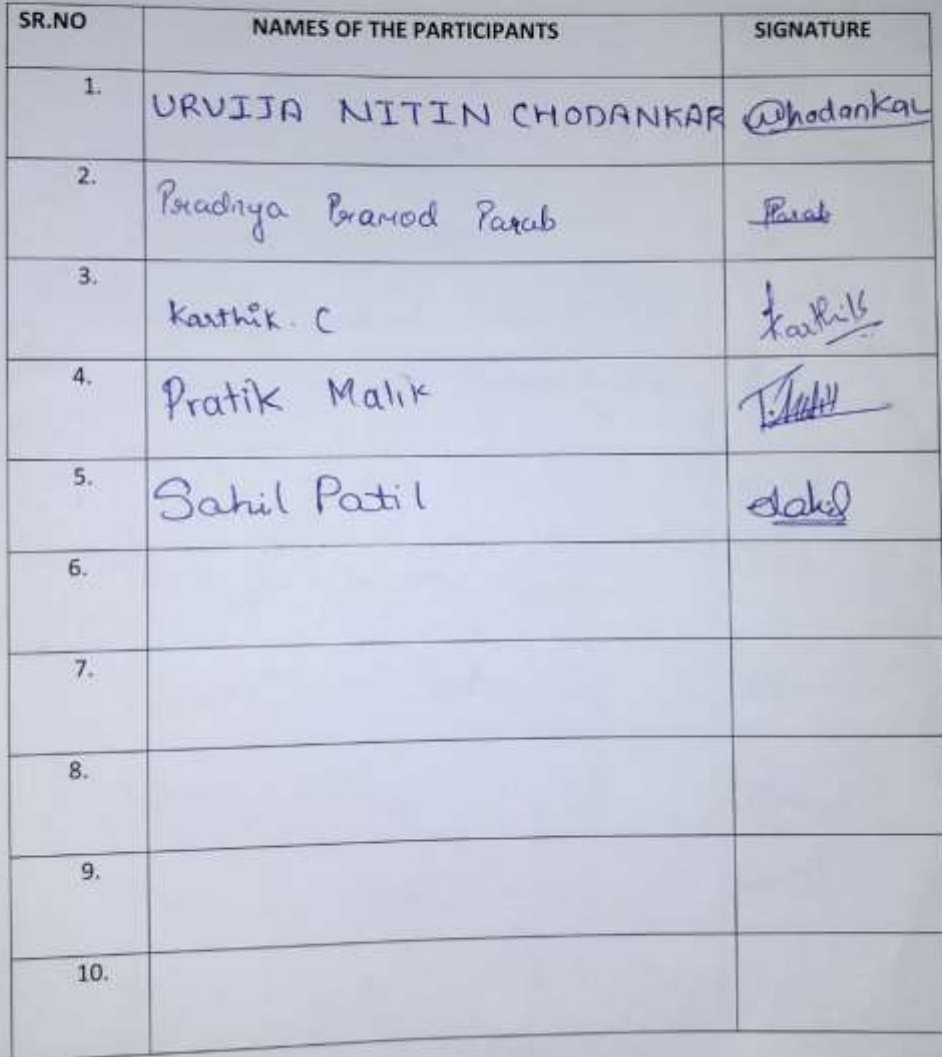 SR.NO NAMES OF THE PARTICIPANTS SIGNATURE
1. URVIJA NITIN CHODANKAR Chodankar
2. Pradnya Pramod Parab Parab
3. Karthik. C Karthik
4. Pratik Malik
5. Sahil Patil Sahil
6.
7.
8.
9.
10.